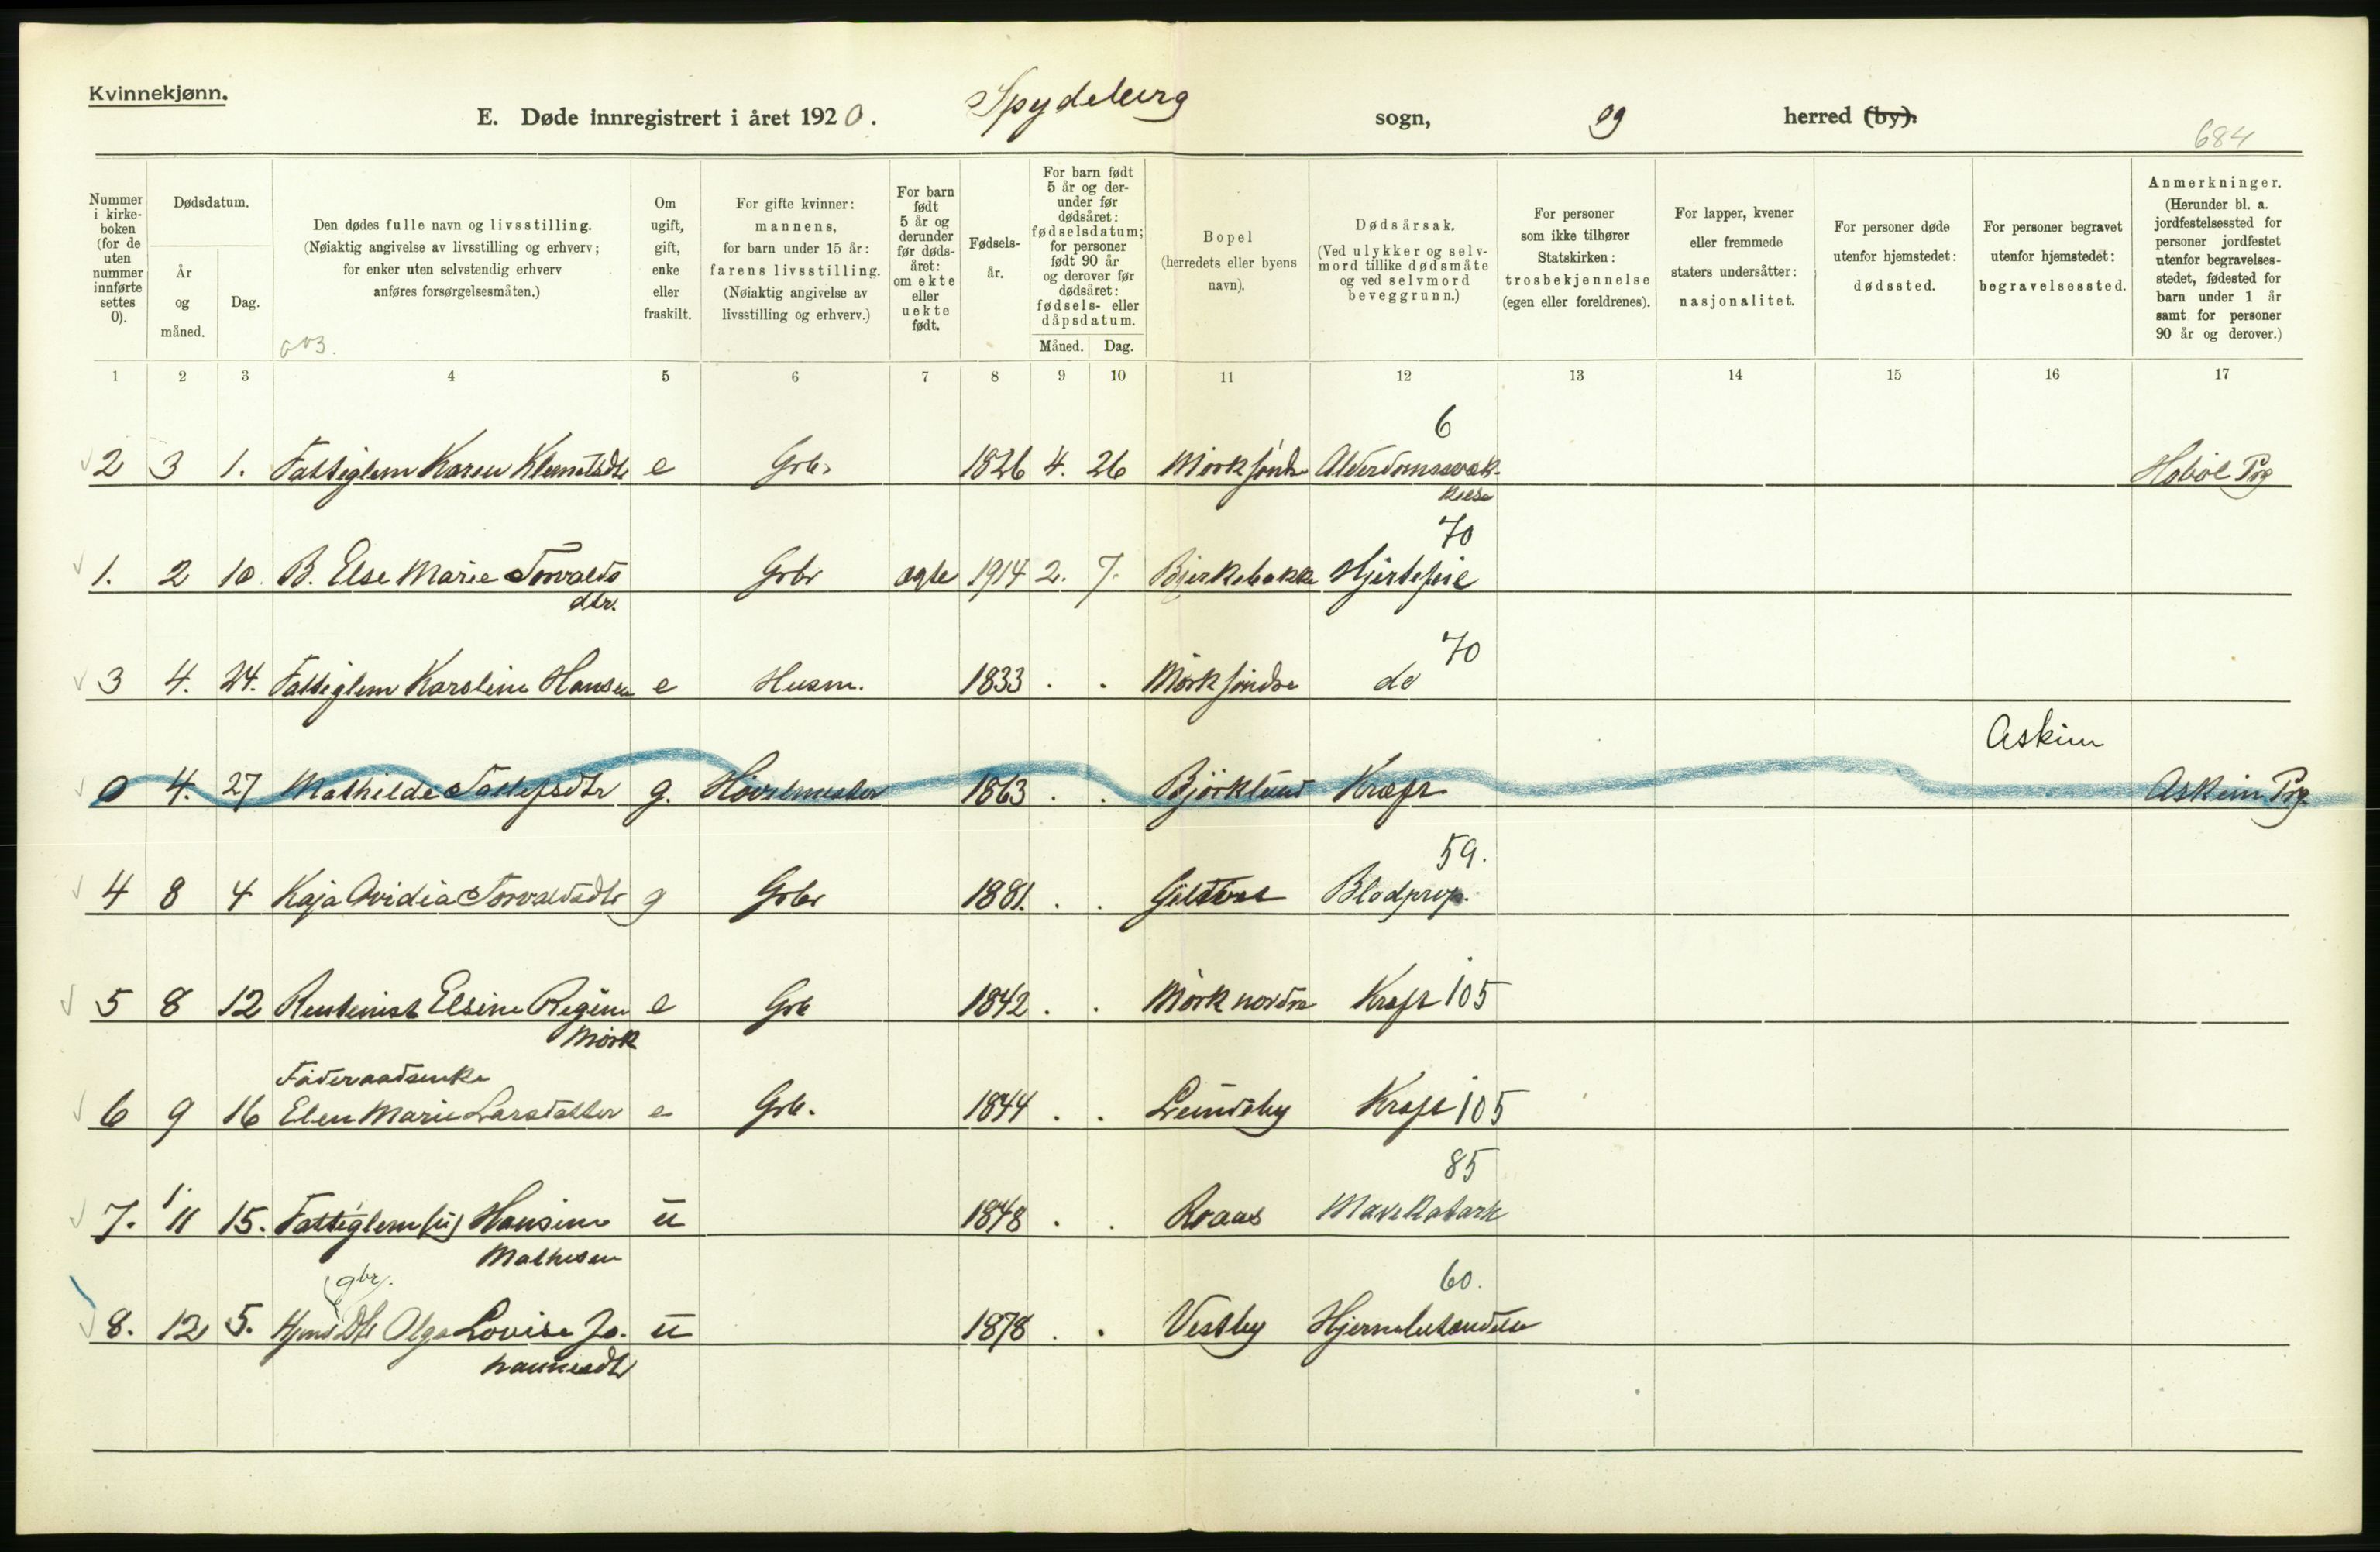 Kvinnekjønn.
E. Døde innregistrert i året 1920. Spydeberg sogn, og herred (by).
684
Nummer i kirke-boken (for de uten nummer innførte settes 0).
Dødsdatum.
År og måned.
Dag.
Den dødes fulle navn og livsstilling. (Nøiaktig angivelse av livsstilling og erhverv; for enker uten selvstendig erhverv anføres forsørgelsesmåten.)
Om ugift, gift, enke eller fraskilt.
For gifte kvinner: mannens, for barn under 15 år: farens livsstilling. (Nøiaktig angivelse av livsstilling og erhverv.)
For barn født 5 år og derunder før døds-året: om ekte eller uekte født.
Fødsels-år.
For barn født 5 år og der-under før dødsåret: fødselsdatum; for personer født 90 år og derover før dødsåret: fødsels- eller dåpsdatum.
Måned. Dag.
Bopel (herredets eller byens navn).
Dødsårsak. (Ved ulykker og selv-mord tillike dødsmåte og ved selvmord beveggrunn.)
For personer som ikke tilhører Statskirken: trosbekjennelse (egen eller foreldrenes).
For lapper, kvener eller fremmede staters undersåtter: nasjonalitet.
For personer døde utenfor hjemstedet: dødssted.
For personer begravet utenfor hjemstedet: begravelsessted.
Anmerkninger. (Herunder bl. a. jordfestelsessted for personer jordfestet utenfor begravelses-stedet, fødested for barn under 1 år samt for personer 90 år og derover.)
1 2 3 4 5 6 7 8 9 10 11 12 13 14 15 16 17
6
2 3 1. Fattiglem Karen Klemetsdtr e Grbr 1826 4. 26 Mörk söndre Alderdomssvak-
kelse Hobøl Prg
70
1. 2 10 B. Else Marie Torvalds Grbr ægte 1914 2. 7. Bjerkebakke Hjertefeil
dtr.
70
3 4. 24. Fattiglem Karoline Hansen e Husm. 1833 . . Mörk söndre do
Askim
0 4. 27 Mathilde Tollefsdtr g. Hövlemester 1863 . . Björklund Kræft Askim Prg.
59.
4 8 4 Kaja Ovidia Torvaldsdtr g Grbr 1881. . . Blodprop.
5 8 12 Rentenist Elsine Regine e Grb 1842 . . Mörk nordre Kræft 105
Mörk
Föderaadsenke
6 9 16 Elen Marie Larsdatter e Grb. 1844 . . Lundeby Kræft 105
85
7. 11 15. Fattiglem Hansine u 1848 . . Raaas Mavekatarh
Mathisen
gbr. 60.
8. 12 5. Hjms Dtr Olga Lovise Jo- u 1878 . . Vestby Hjernebetændelse
hannesdtr